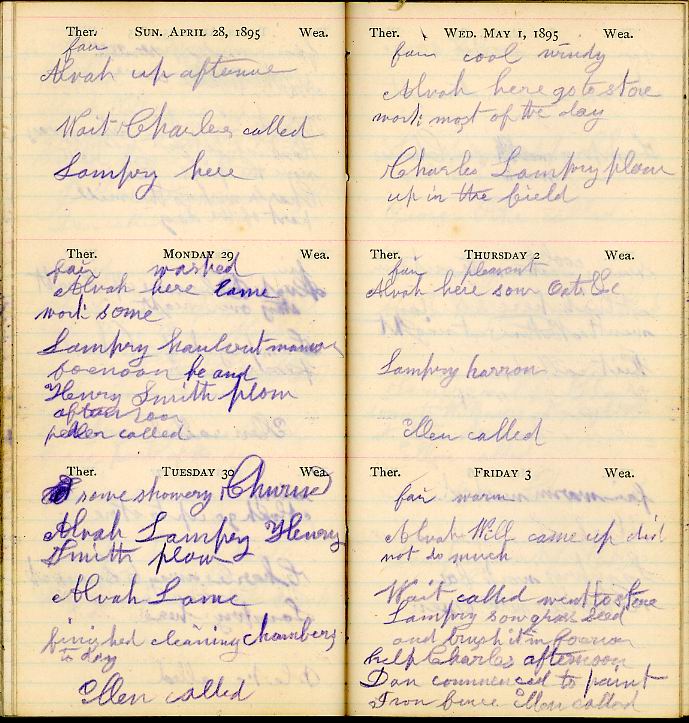 Ther. SUN. APRIL 28, 1895 Wea.
fair
Alvah up afternoe
Wait Charles called
Lampry here
Ther. MONDAY 29 Wea.
fair washed
Alvah here lame
work some
Lampry haul out manure
forenoon he and
Henry Smith plow
afternoon
Ellen called
Ther. TUESDAY 30 Wea.
some showery Churned
Alvah Lampry Henry
Smith plow
Alvah Lame
finished cleaning chambers
to day
Ellen called
Ther. WED. MAY 1, 1895 Wea.
fair cool windy
Alvah here go to store
work most of the day
Charles Lampry plow
up in the field
Ther. THURSDAY 2 Wea.
fair pleasant
Alvah here sow Oats &c
Lampry harrow
Ellen called
Ther. FRIDAY 3 Wea.
fair warm
Alvah Will came up did
not do much
Wait called went to store
Lampry sow grass seed
and brush it in forenoon
help Charles afternoon
Dan commenced to paint
Iron fence Ellen called